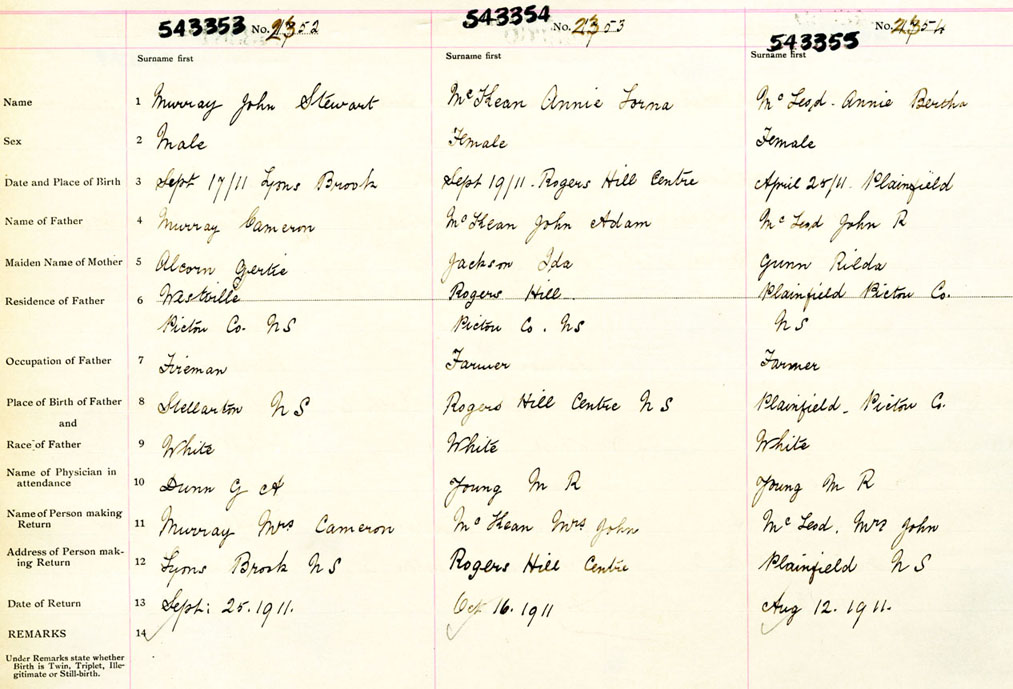 543353 No. 2352 543354 No. 2353 543355 No. 2354
Surname first Surname first Surname first
Name 1 Murray John Stewart McKean Annie Lorna McLeod - Annie Bertha
Sex 2 Male Female Female
Date and Place of Birth 3 Sept 17/11 Lyons Brook Sept 19/11 - Rogers Hill Centre April 28/11 - Plainfield
Name of Father 4 Murray Cameron McKean John Adam McLeod John R
Maiden Name of Mother 5 Alcorn Gertie Jackson Ida Gunn Rilda
Residence of Father 6 Westville Rogers Hill. Plainfield Pictou Co.
Pictou Co. NS Pictou Co. NS NS
Occupation of Father 7 Fireman Farmer Farmer
Place of Birth of Father 8 Stellarton NS Rogers Hill Centre NS Plainfield - Pictou Co.
and
Race of Father 9 White White White
Name of Physician in
attendance 10 Dunn G A Young M R Young M R
Name of Person making
Return 11 Murray Mrs Cameron McKean Mrs John McLeod, Mrs John
Address of Person mak-
ing Return 12 Lyons Brook NS Rogers Hill Centre Plainfield NS
Date of Return 13 Sept: 25. 1911. Oct 16. 1911 Aug 12. 1911.
REMARKS 14
Under Remarks state whether
Birth is Twin, Triplet, Ille-
gitimate or Still-birth.